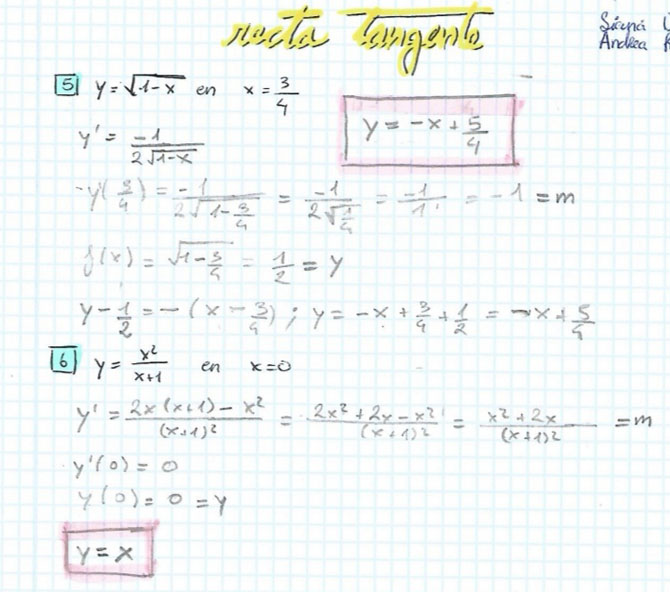 recta tangente
Andrea
5 y = √(1-x) en x = 3/4
y = -x + 5/4
y' = -1/(2√(1-x))
y(3/4) = -1/(2√(1-3/4)) = -1/(2√(1/4)) = -1/1 = -1 = m
f(x) = √(1-3/4) = 1/2 = y
y - 1/2 = -(x - 3/4) ; y = -x + 3/4 + 1/2 = -x + 5/4
6 y = x²/(x+1) en x=0
y' = (2x(x+1) - x²)/(x+1)² = (2x² + 2x - x²)/(x+1)² = (x² + 2x)/(x+1)² = m
y'(0) = 0
y(0) = 0 = y
y = x